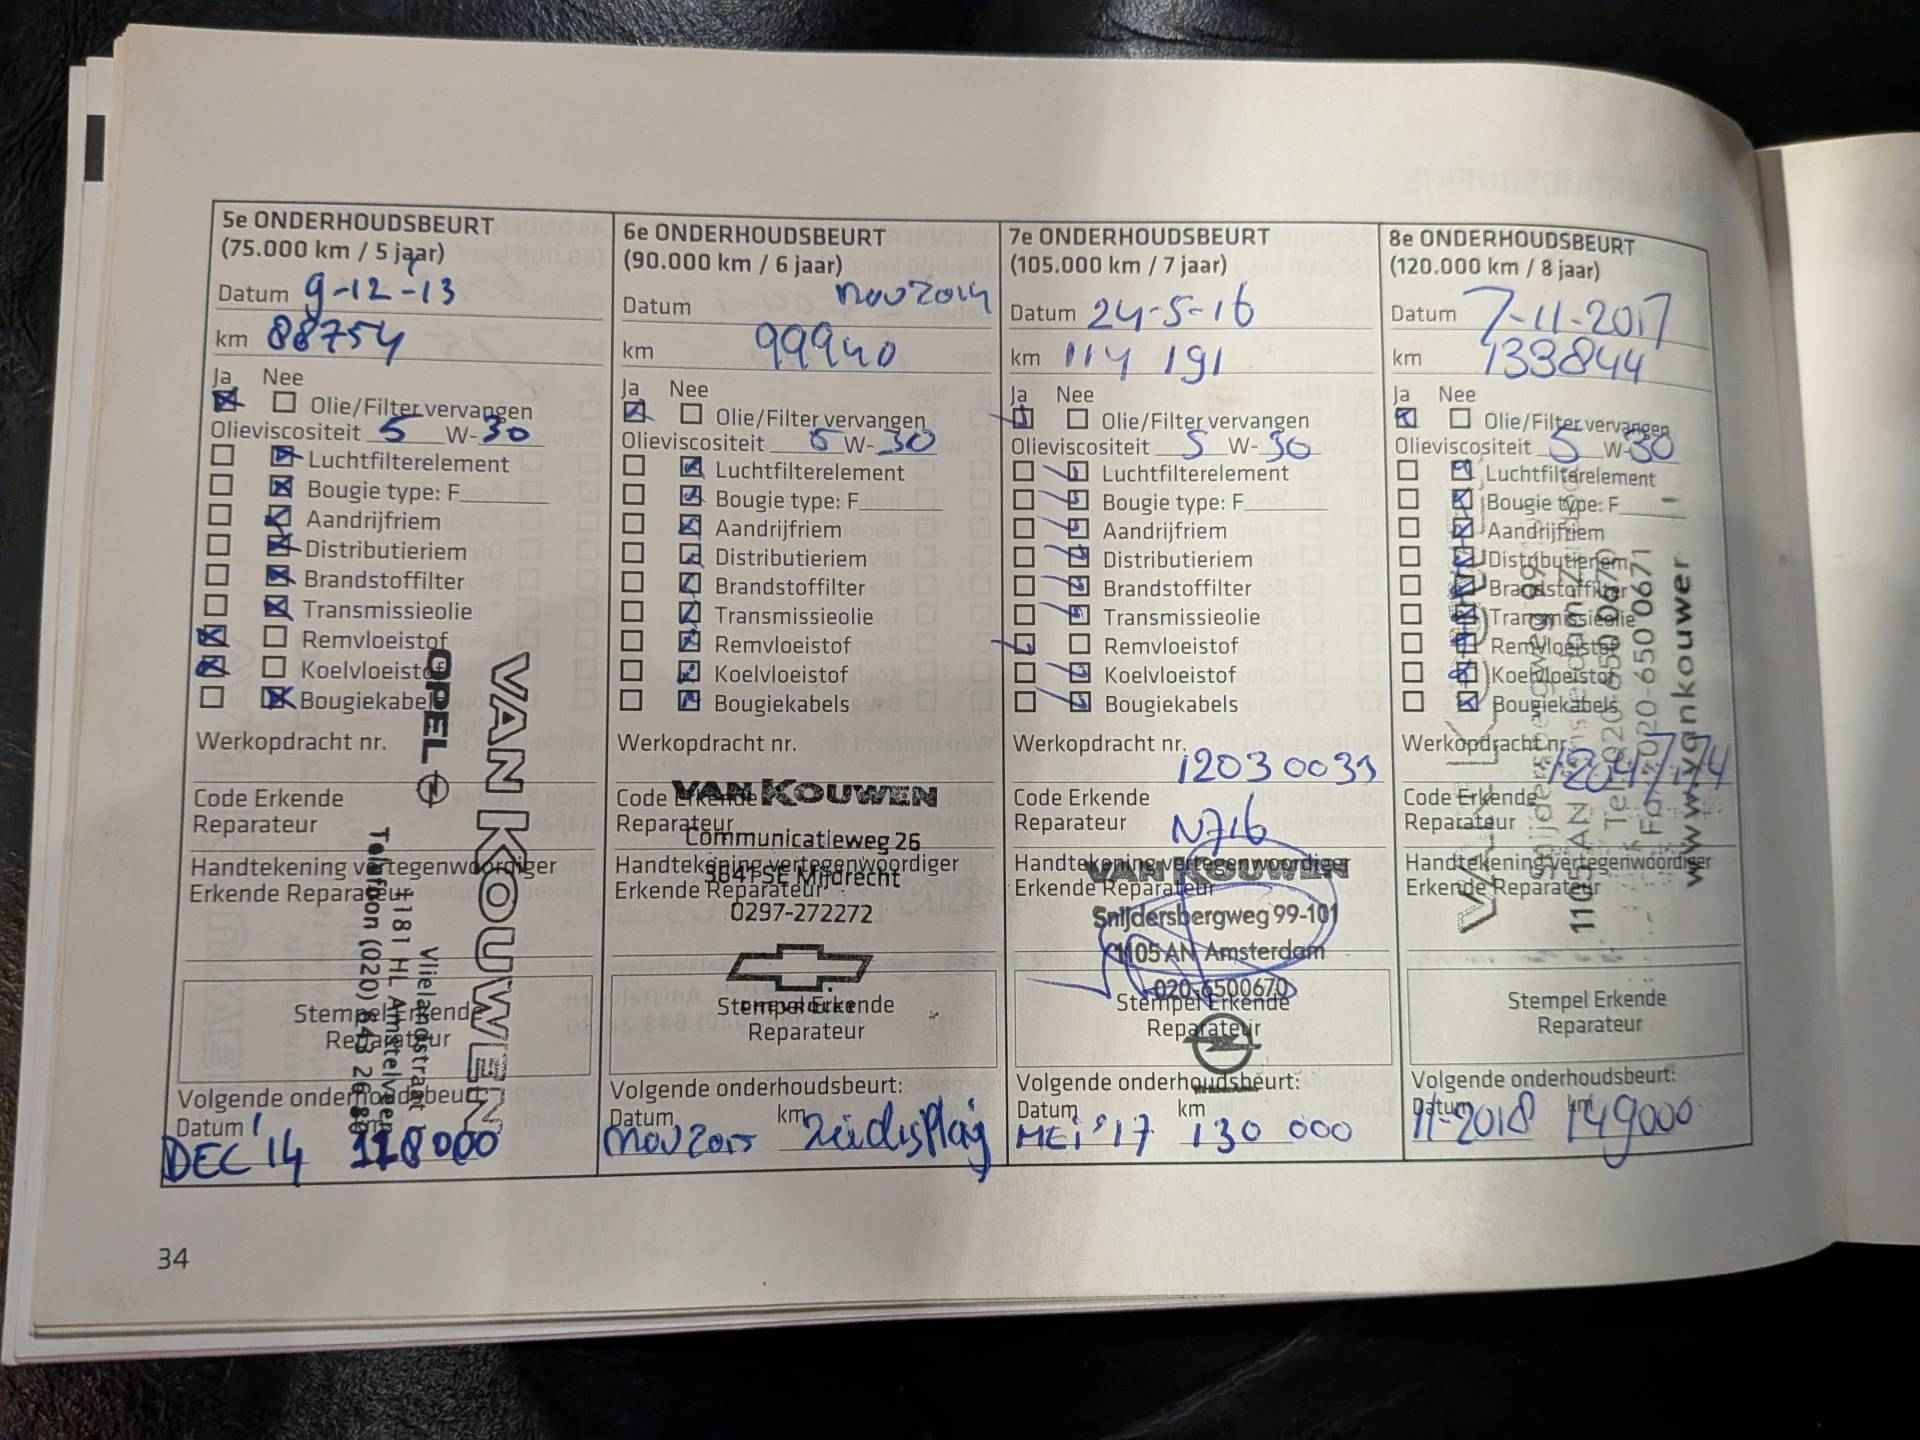 5e ONDERHOUDSBEURT
(75.000 km / 5 jaar)
Datum 9-12-13
km 88754
Ja Nee
Olie/Filter vervangen
Olieviscositeit 5 W-30
Luchtfilterelement
Bougie type: F
Aandrijfriem
Distributieriem
Brandstoffilter
Transmissieolie
Remvloeistof
Koelvloeistof
Bougiekabels
Werkopdracht nr.
Code Erkende
Reparateur
Handtekening vertegenwoordiger
Erkende Reparateur
Stempel Erkende
Reparateur
OPEL
VAN KOUWEN
Vlielandstraat 1
1181 HL Amstelveen
Telefoon (020) 643 26 80
Volgende onderhoudsbeurt:
Datum km
DEC 14 118000
6e ONDERHOUDSBEURT
(90.000 km / 6 jaar)
Datum nov 2014
km 99940
Ja Nee
Olie/Filter vervangen
Olieviscositeit 5 W-30
Luchtfilterelement
Bougie type: F
Aandrijfriem
Distributieriem
Brandstoffilter
Transmissieolie
Remvloeistof
Koelvloeistof
Bougiekabels
Werkopdracht nr.
Code Erkende
Reparateur
Handtekening vertegenwoordiger
Erkende Reparateur
VAN KOUWEN
Communicatieweg 26
3641 SE Mijdrecht
0297-272272
CHEVROLET
Stempel Erkende
Reparateur
Volgende onderhoudsbeurt:
Datum km
nov 2015 zie display
7e ONDERHOUDSBEURT
(105.000 km / 7 jaar)
Datum 24-5-16
km 114 191
Ja Nee
Olie/Filter vervangen
Olieviscositeit 5 W-30
Luchtfilterelement
Bougie type: F
Aandrijfriem
Distributieriem
Brandstoffilter
Transmissieolie
Remvloeistof
Koelvloeistof
Bougiekabels
Werkopdracht nr.
12030033
Code Erkende
Reparateur N716
Handtekening vertegenwoordiger
Erkende Reparateur
VAN KOUWEN
Snijdersbergweg 99-101
1105 AN Amsterdam
020-6500670
Stempel Erkende
Reparateur
Volgende onderhoudsbeurt:
Datum km
MEI '17 130 000
8e ONDERHOUDSBEURT
(120.000 km / 8 jaar)
Datum 7-11-2017
km 133844
Ja Nee
Olie/Filter vervangen
Olieviscositeit 5 W-30
Luchtfilterelement
Bougie type: F
Aandrijfriem
Distributieriem
Brandstoffilter
Transmissieolie
Remvloeistof
Koelvloeistof
Bougiekabels
Werkopdracht nr.
Code Erkende
Reparateur
Handtekening vertegenwoordiger
Erkende Reparateur
Snijdersbergweg 99
1105 AN Amsterdam
Tel. 020-650 0670
Fax 020-650 0671
www.vankouwen
Stempel Erkende
Reparateur
Volgende onderhoudsbeurt:
Datum km
11-2018 149000
34